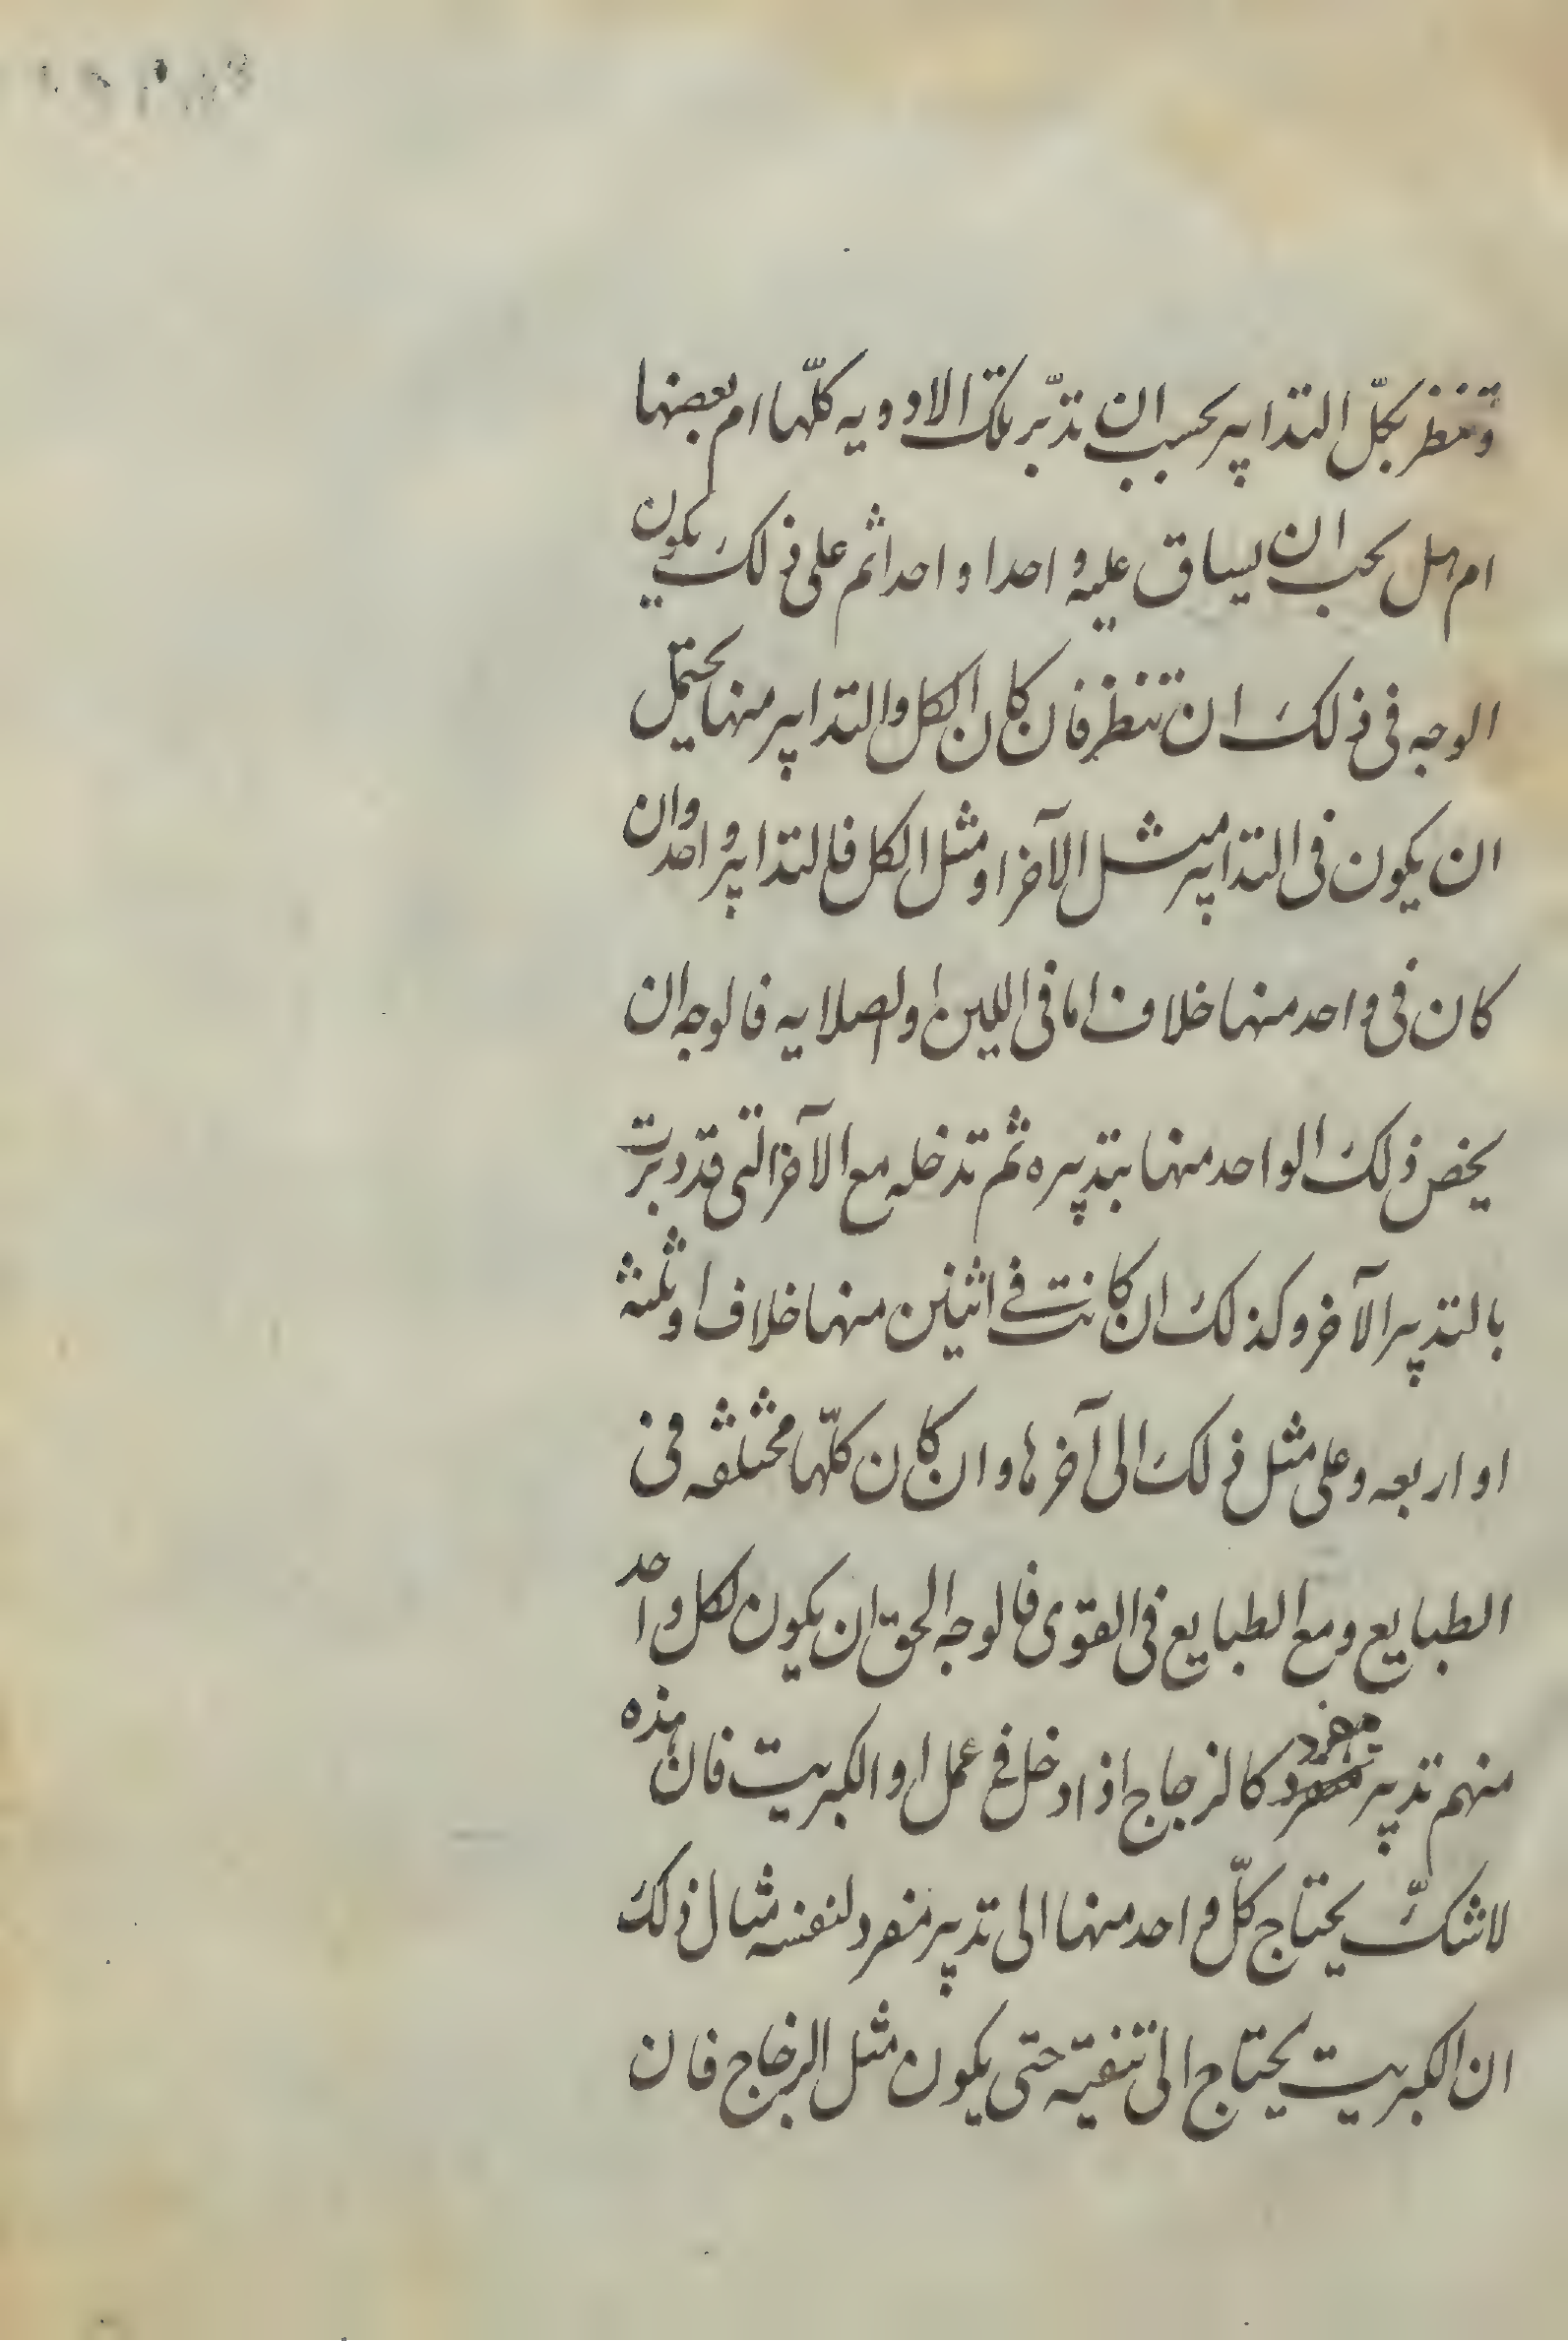 وتنظر بكلّ التدابير بحسب ان تدبّر تلك الادويه كلّها ام بعضها
ام هل يجب ان يساق عليه واحدا واحدا ثم على ذلك يكون
الوجه فى ذلك ان تنظر فان كان الكل والتدابير منها يحتمل
ان يكون فى التدابير مثل الآخر او مثل الكل فالتدابير واحد وان
كان فى واحد منها خلاف اما فى اللين او الصلابه فالوجه ان
يخص ذلك الواحد منها بتدبيره ثم تدخله مع الآخر التى قد دبرت
بالتدبير الآخر وكذلك ان كانت فى اثنين منها خلاف او ثلثه
او اربعه وعلى مثل ذلك الى آخرها وان كان كلّها مختلفه فى
الطبايع ومع الطبايع فى القوى فالوجه الحق ان يكون لكل واحد
منهم تدبير مفرد كالزجاج اذا دخل فى عمل او الكبريت فان هذه
لاشكّ يحتاج كلّ واحد منها الى تدبير منفرد لنفسه مثال ذلك
ان الكبريت يحتاج الى تنقيته حتى يكون مثل الزجاج فان